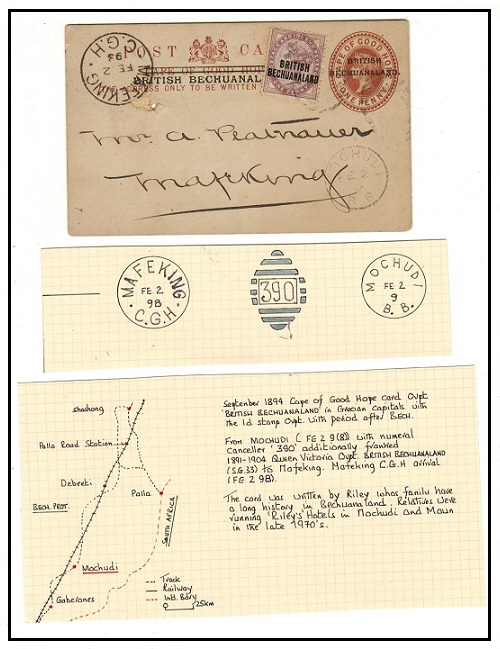 POST CA
CAPE OF GOOD HOPE
BRITISH BECHUANAL
E ADDRESS ONLY TO BE WRITTEN
MAFEKING
FE 2
98
C.G.H
BRITISH
BECHUANALAND
CAPE OF GOOD HOPE
BRITISH
BECHUANALAND.
ONE PENNY
Mr A.
Mafeking
MOCHUDI
FE 2
B.B.
MAFEKING
FE 2
98
C.G.H
390
MOCHUDI
FE 2
9
B.B.
Shoshong
Palla Road Station
Debeeti
BECH. PROT.
Palla
SOUTH AFRICA
Mochudi
Gaberones
Track
Railway
Intl. Bdry
25km
September 1894 Cape of Good Hope card Ovpt
'BRITISH BECHUANALAND' in Grecian capitals with
the 1d stamp Ovpt with period after BECH.
From MOCHUDI (FE 2 9(8)) with numeral
canceller '390' additionally franked
1891-1904 Queen Victoria Ovpt. BRITISH BECHUANALAND
(S.G.33) to Mafeking. Mafeking C.G.H arrival
(FE 2 98).
The card was written by Riley whos family have
a long history in Bechuanaland. Relatives were
running 'Riley's Hotels in Mochudi and Maun
in the late 1970's.